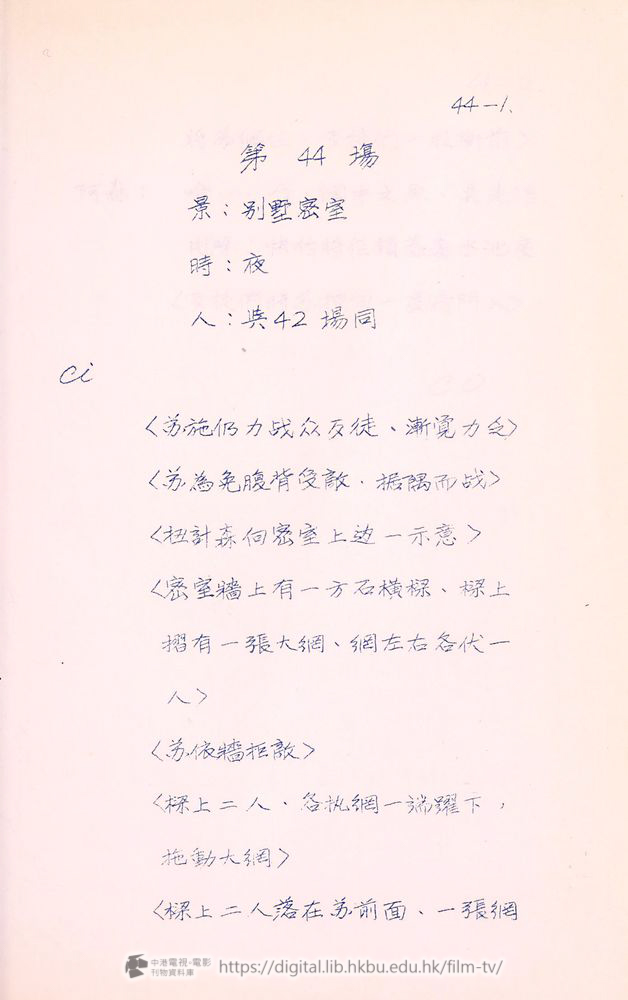 44-1.
第 44 場
景：別墅密室
時：夜
人：與42場同
ci
〈苏施仍力战众反徒、漸覺力乏〉
〈苏為免腹背受敵．据隅而战〉
〈扭計森向密室上边一示意〉
〈密室牆上有一方石橫樑、樑上
摺有一張大網、網左右各伏一
人〉
〈苏依牆拒敵〉
〈樑上二人．各执網一端躍下，
拖動大網〉
〈樑上二人落在苏前面、一張網
中港電視·電影
刊物資料庫
https://digital.lib.hkbu.edu.hk/film-tv/